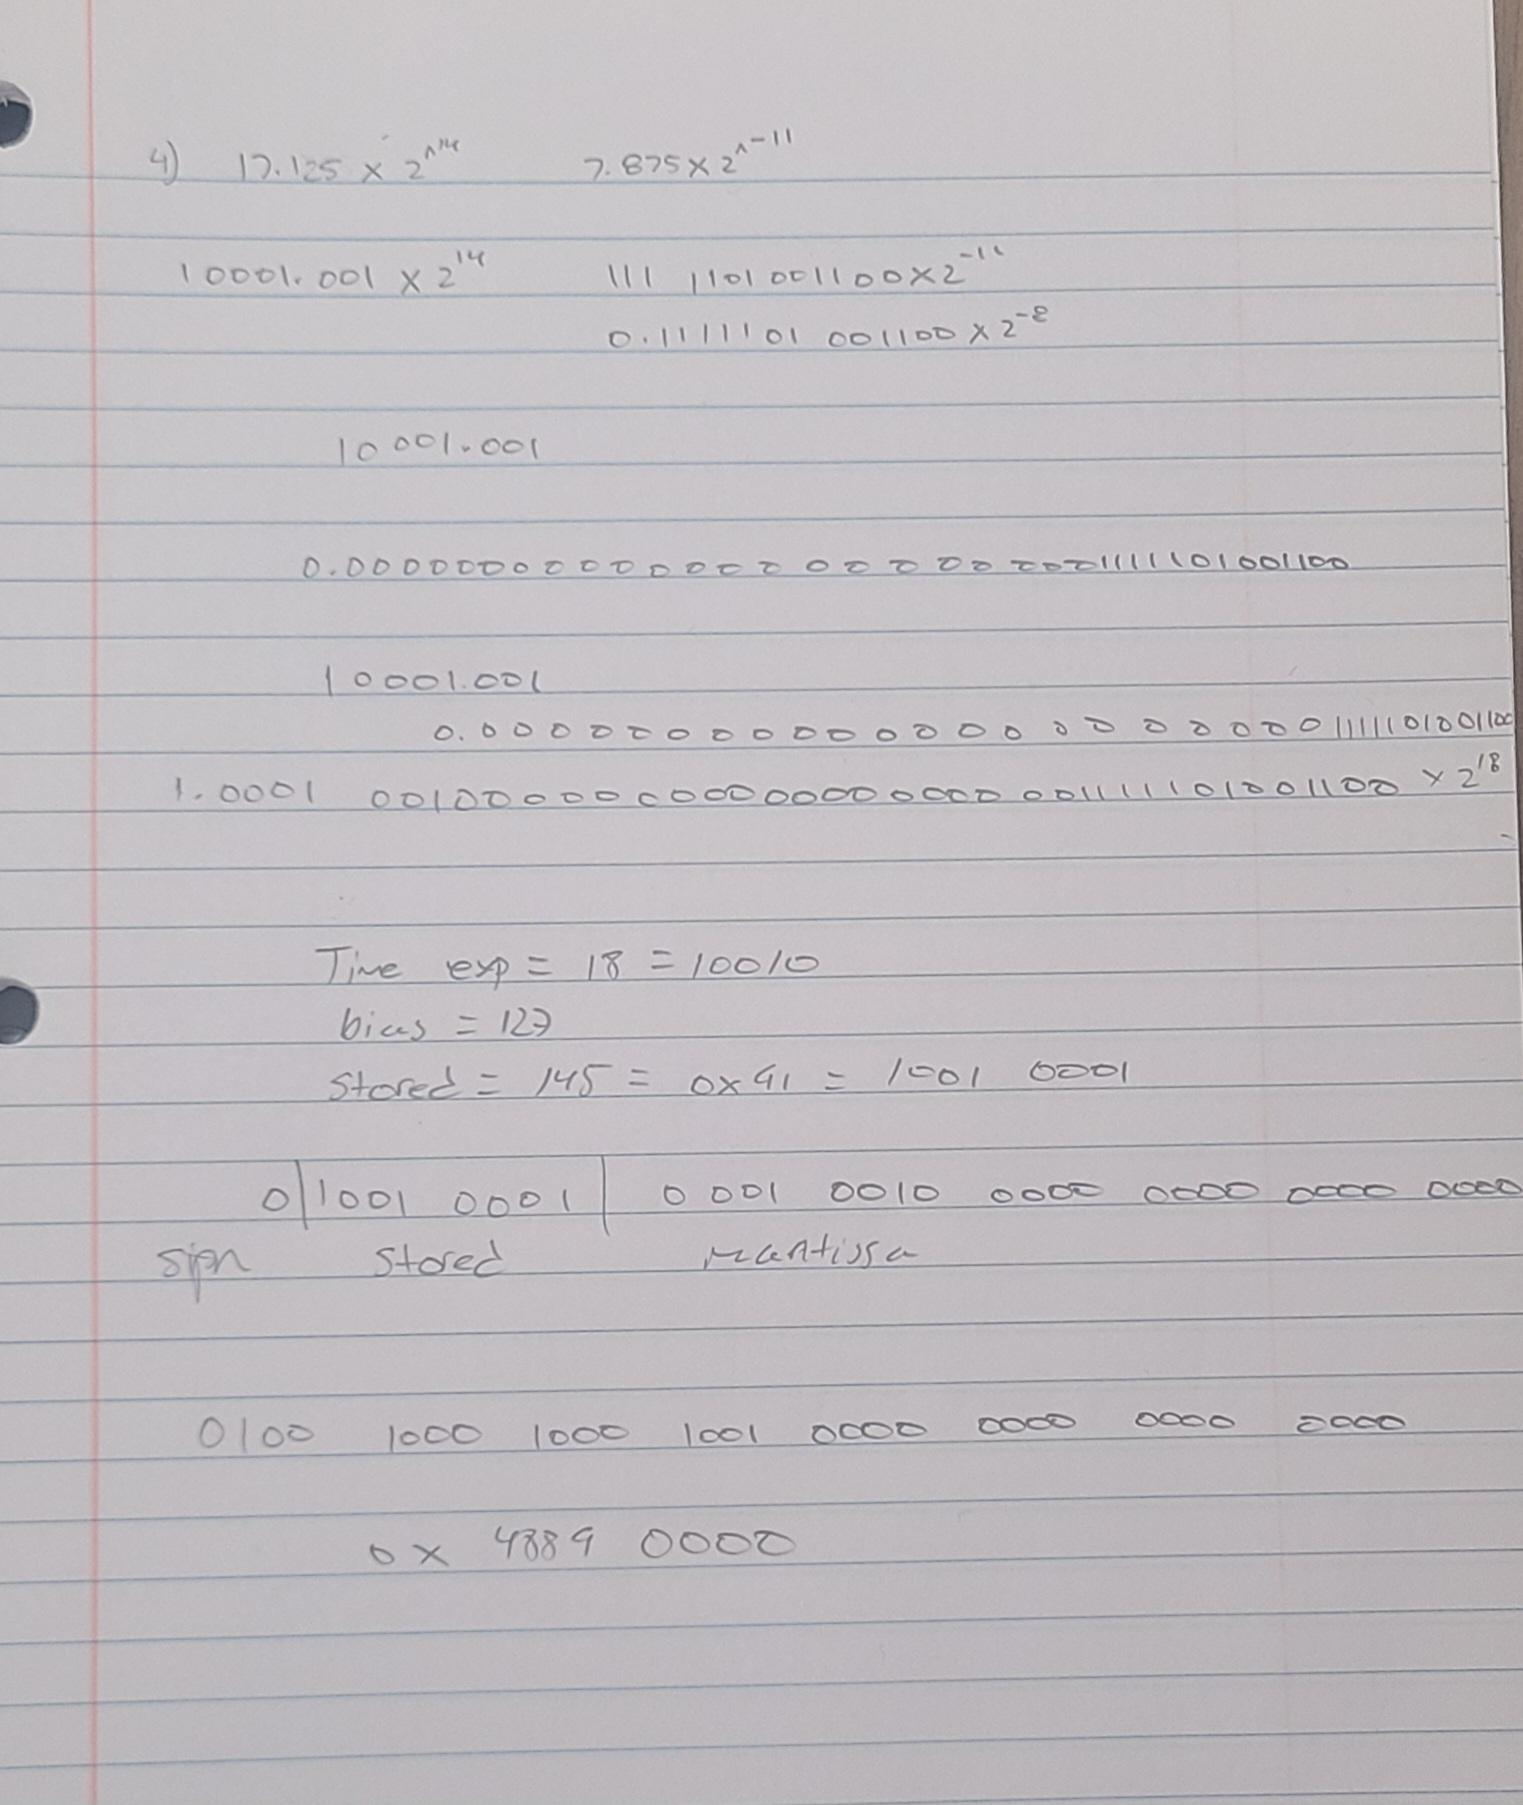 4) 17.125 x 2^14 7.875 x 2^-11
10001.001 x 2^14 111 1101001100 x 2^-11
0.1111101 001100 x 2^-8
10001.001
0.000000000000000000000011111101001100
10001.001
0.000000000000000000011111101001100
1.0001 00100000000000000000000011111101001100 x 2^18
True exp = 18 = 10010
bias = 127
Stored = 145 = 0x91 = 1001 0001
0|1001 0001| 0001 0010 0000 0000 0000 0000
sign stored mantissa
0100 1000 1000 1001 0000 0000 0000 0000
0x 4889 0000